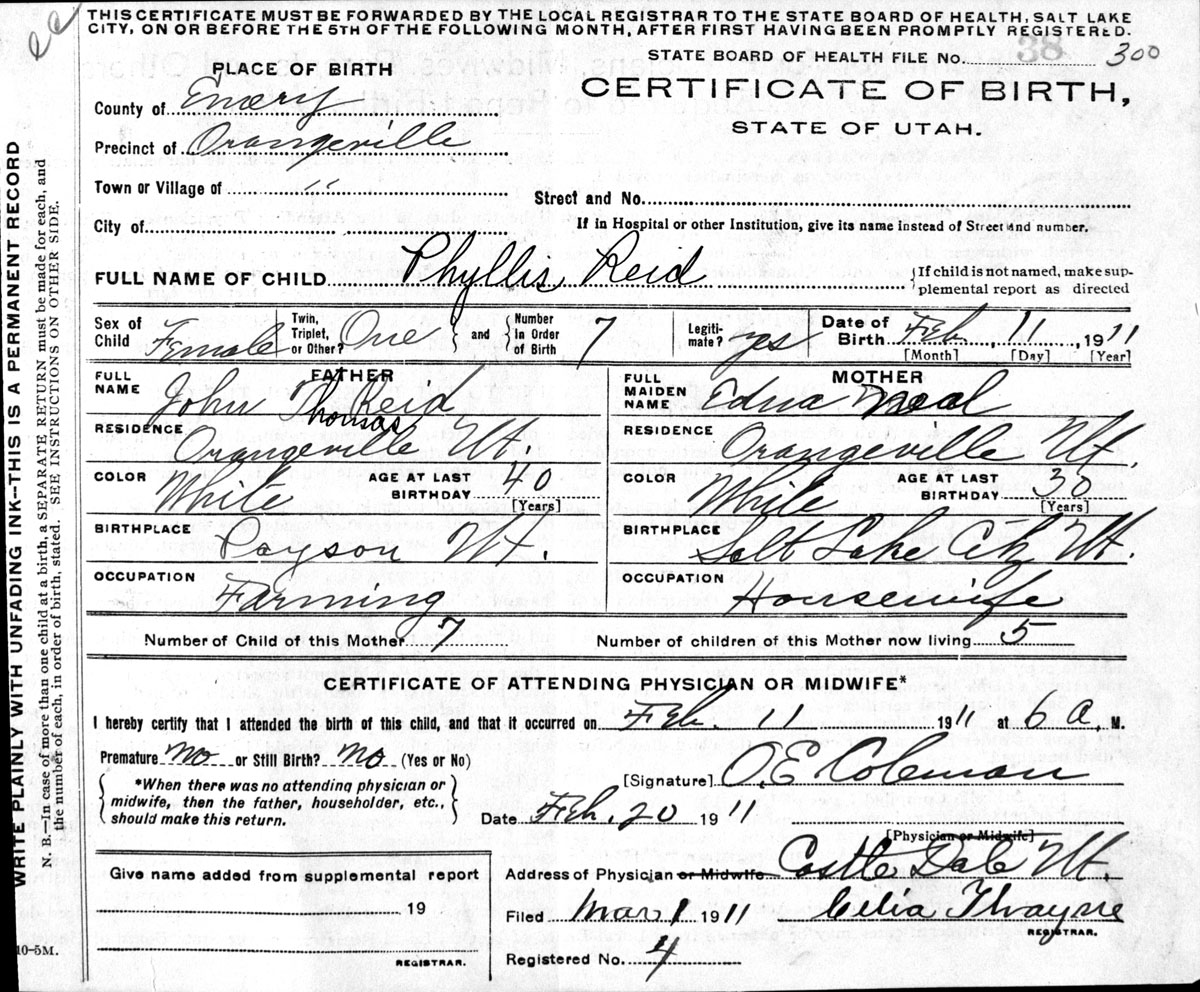 THIS CERTIFICATE MUST BE FORWARDED BY THE LOCAL REGISTRAR TO THE STATE BOARD OF HEALTH, SALT LAKE
CITY, ON OR BEFORE THE 5TH OF THE FOLLOWING MONTH, AFTER FIRST HAVING BEEN PROMPTLY REGISTERED.
STATE BOARD OF HEALTH FILE No. 38 300
PLACE OF BIRTH
CERTIFICATE OF BIRTH,
STATE OF UTAH.
County of Emery
Precinct of Orangeville
Town or Village of "
Street and No.
City of
If in Hospital or other Institution, give its name instead of Street and number.
FULL NAME OF CHILD Phyllis Reid
{If child is not named, make sup-
plemental report as directed
Sex of Child Female
Twin, Triplet, or Other? One
and
Number In Order of Birth 7
Legiti-mate? yes
Date of Birth Feb. 11, 1911
[Month] [Day] [Year]
FATHER
FULL NAME John Thomas Reid
RESIDENCE Orangeville Ut.
COLOR White
AGE AT LAST BIRTHDAY 40
[Years]
BIRTHPLACE Payson Ut.
OCCUPATION Farming
MOTHER
FULL MAIDEN NAME Edna Neal
RESIDENCE Orangeville Ut.
COLOR White
AGE AT LAST BIRTHDAY 30
[Years]
BIRTHPLACE Salt Lake City Ut.
OCCUPATION Housewife
Number of Child of this Mother 7
Number of children of this Mother now living 5
CERTIFICATE OF ATTENDING PHYSICIAN OR MIDWIFE*
I hereby certify that I attended the birth of this child, and that it occurred on Feb. 11 1911 at 6 a, M.
Premature no or Still Birth? no (Yes or No)
*When there was no attending physician or
midwife, then the father, householder, etc.,
should make this return.
[Signature] O.E. Coleman
Date Feb. 20 1911
[Physician or Midwife]
Address of Physician or Midwife Castle Dale Ut.
Give name added from supplemental report
19
REGISTRAR.
Filed Mar 1 1911 Celia Thayne
REGISTRAR.
Registered No. 4
WRITE PLAINLY WITH UNFADING INK--THIS IS A PERMANENT RECORD
N. B.—In case of more than one child at a birth, a SEPARATE RETURN must be made for each, and
the number of each, in order of birth, stated. SEE INSTRUCTIONS ON OTHER SIDE.
10-5M.